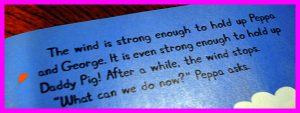 The wind is strong enough to hold up Peppa
and George. It is even strong enough to hold up
Daddy Pig! After a while, the wind stops.
"What can we do now?" Peppa asks.